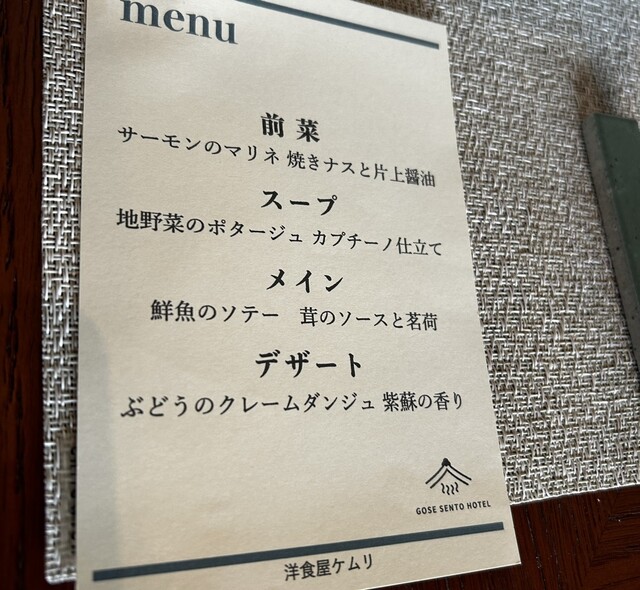 menu
前菜
サーモンのマリネ 焼きナスと片上醤油
スープ
地野菜のポタージュ カプチーノ仕立て
メイン
鮮魚のソテー　茸のソースと茗荷
デザート
ぶどうのクレームダンジュ 紫蘇の香り
GOSE SENTO HOTEL
洋食屋ケムリ